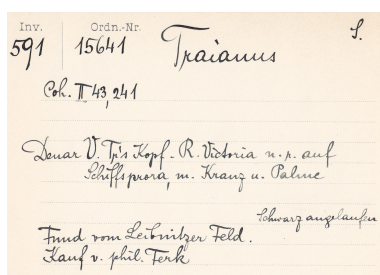 Inv. Ordn.-Nr. S.
591 15641 Traianus
Coh. II 43, 241
Denar V. Tr's Kopf. R. Victoria n. r. auf
Schiffsprora, m. Kranz u. Palme
Schwarz angelaufen
Fund vom Leibnitzer Feld.
Kauf v. phil. Ferk